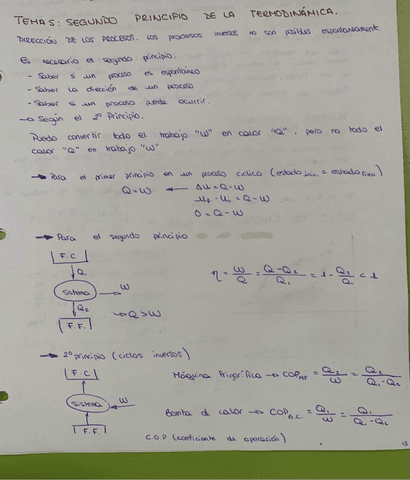 TEMA 5: SEGUNDO PRINCIPIO DE LA TERMODINÁMICA.
DIRECCIÓN DE LOS PROCESOS. Los procesos inversos no son posibles espontaneamente.
Es necesario el segundo principio.
- Saber si un proceso es espontáneo
- Saber la dirección de un proceso
- Saber si un proceso puede ocurrir.
→ Según el 2º Principio.
Puedo convertir todo el trabajo "W" en calor "Q", pero no todo el
calor "Q" en trabajo "W"
→ Para el primer principio en un proceso cíclico (estado inic = estado final)
Q = W ← ΔU = Q - W
U_f - U_i = Q - W
0 = Q - W
→ Para el segundo principio
F.C
Q₁
Sistema → W
Q₂
F.F.
→ Q > W
η = W/Q = (Q₁ - Q₂)/Q₁ = 1 - Q₂/Q₁ < 1
→ 2º principio (ciclos inversos)
F.C
Sistema ← W
F.F.
Máquina frigorífica → COP_MF = Q₂/W = Q₂/(Q₁ - Q₂)
Bomba de calor → COP_B.C. = Q₁/W = Q₁/(Q₁ - Q₂)
C.O.P (coeficiente de operación)